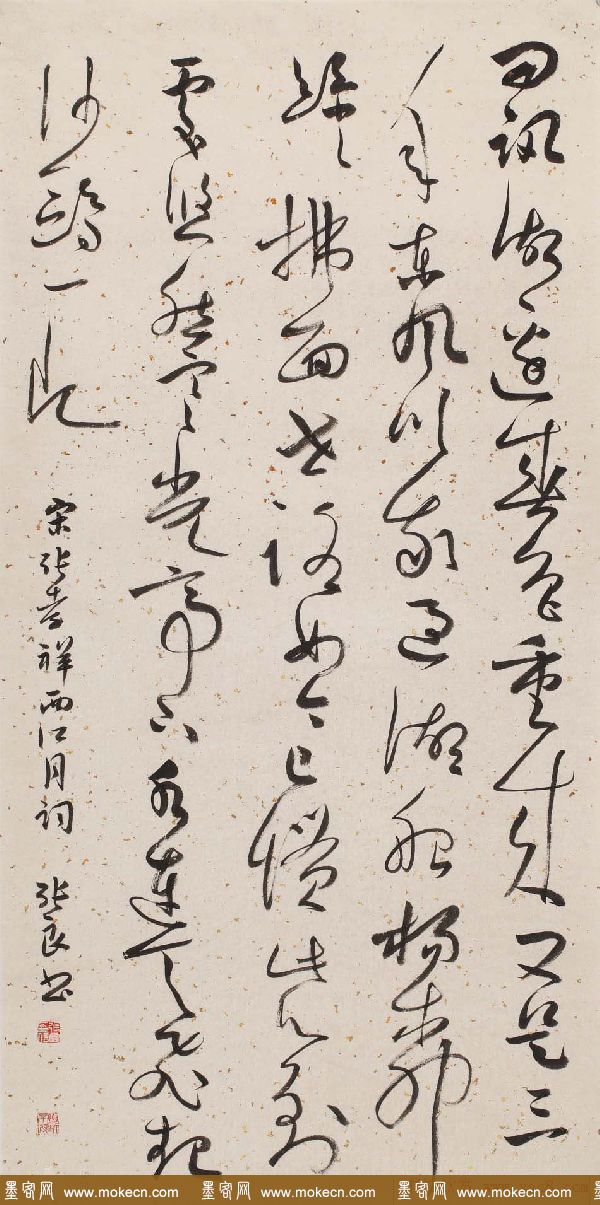 問訊湖邊春色重來又是三
年東風吹我過湖船楊柳
絲絲拂面世路如今已慣此心到
處悠然寒光亭下水連天飛起
沙鷗一片
宋張孝祥西江月詞 張良書
墨客网 www.mokecn.com 墨客网 www.mokecn.com 墨客网 www.mokecn.com